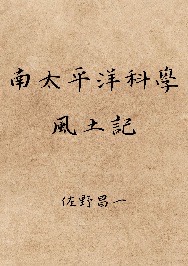 南太平洋科學
風土記
佐野昌一